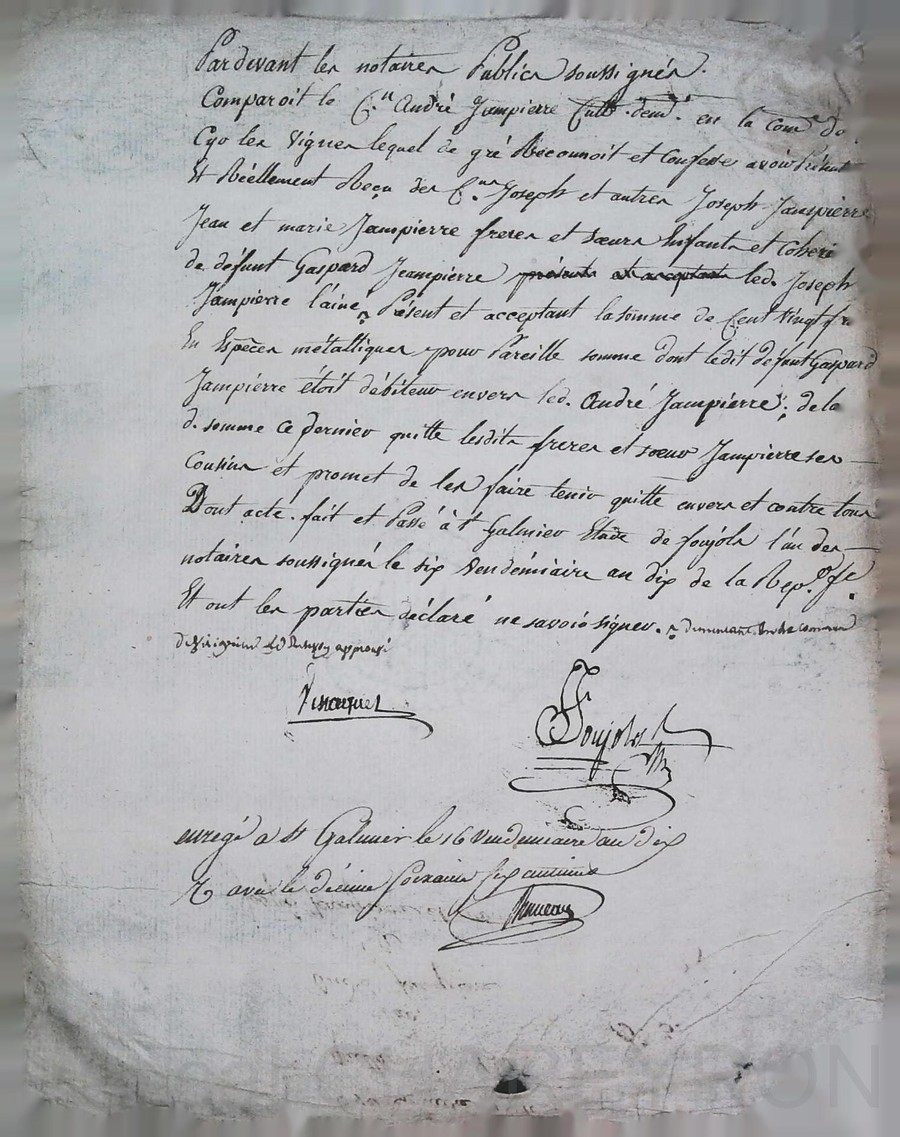 Pardevant les notaires Publics soussignés.
Comparoit le C.en André Jampierre Cult. demt. en la come de
Cyo les Vignes lequel de gré Reconnoit et Confesse avoir Présent
Et Réellement Reçu des C.ens Joseph et autres Joseph Jampierre
Jean et marie Jampierre freres et sœurs Enfants et Coheri
de défunt Gaspard Jeampierre présents et acceptants led. Joseph
Jampierre l'ainé, Présent et acceptant la somme de Cent Vingt fr.
En Espèces métalliques pour Pareille somme dont ledit défunt Gaspard
Jampierre étoit débiteur envers led. André Jampierre; de la
d. somme ce dernier quitte lesdits freres et sœur Jampierre ses
Cousins et promet de les faire tenir quitte envers et contre tous
Dont acte. fait et Passé à St Galmier Etude de Joujols l'un des
notaires soussignés le six Vendémiaire an dix de la Rep. fe.
Et ont les parties déclaré ne savoir signer. demeurant
approuvé
Joujols
enregé a St Galmier le 16 Vendemiaire an dix
R avec le dixime soixante six centimes